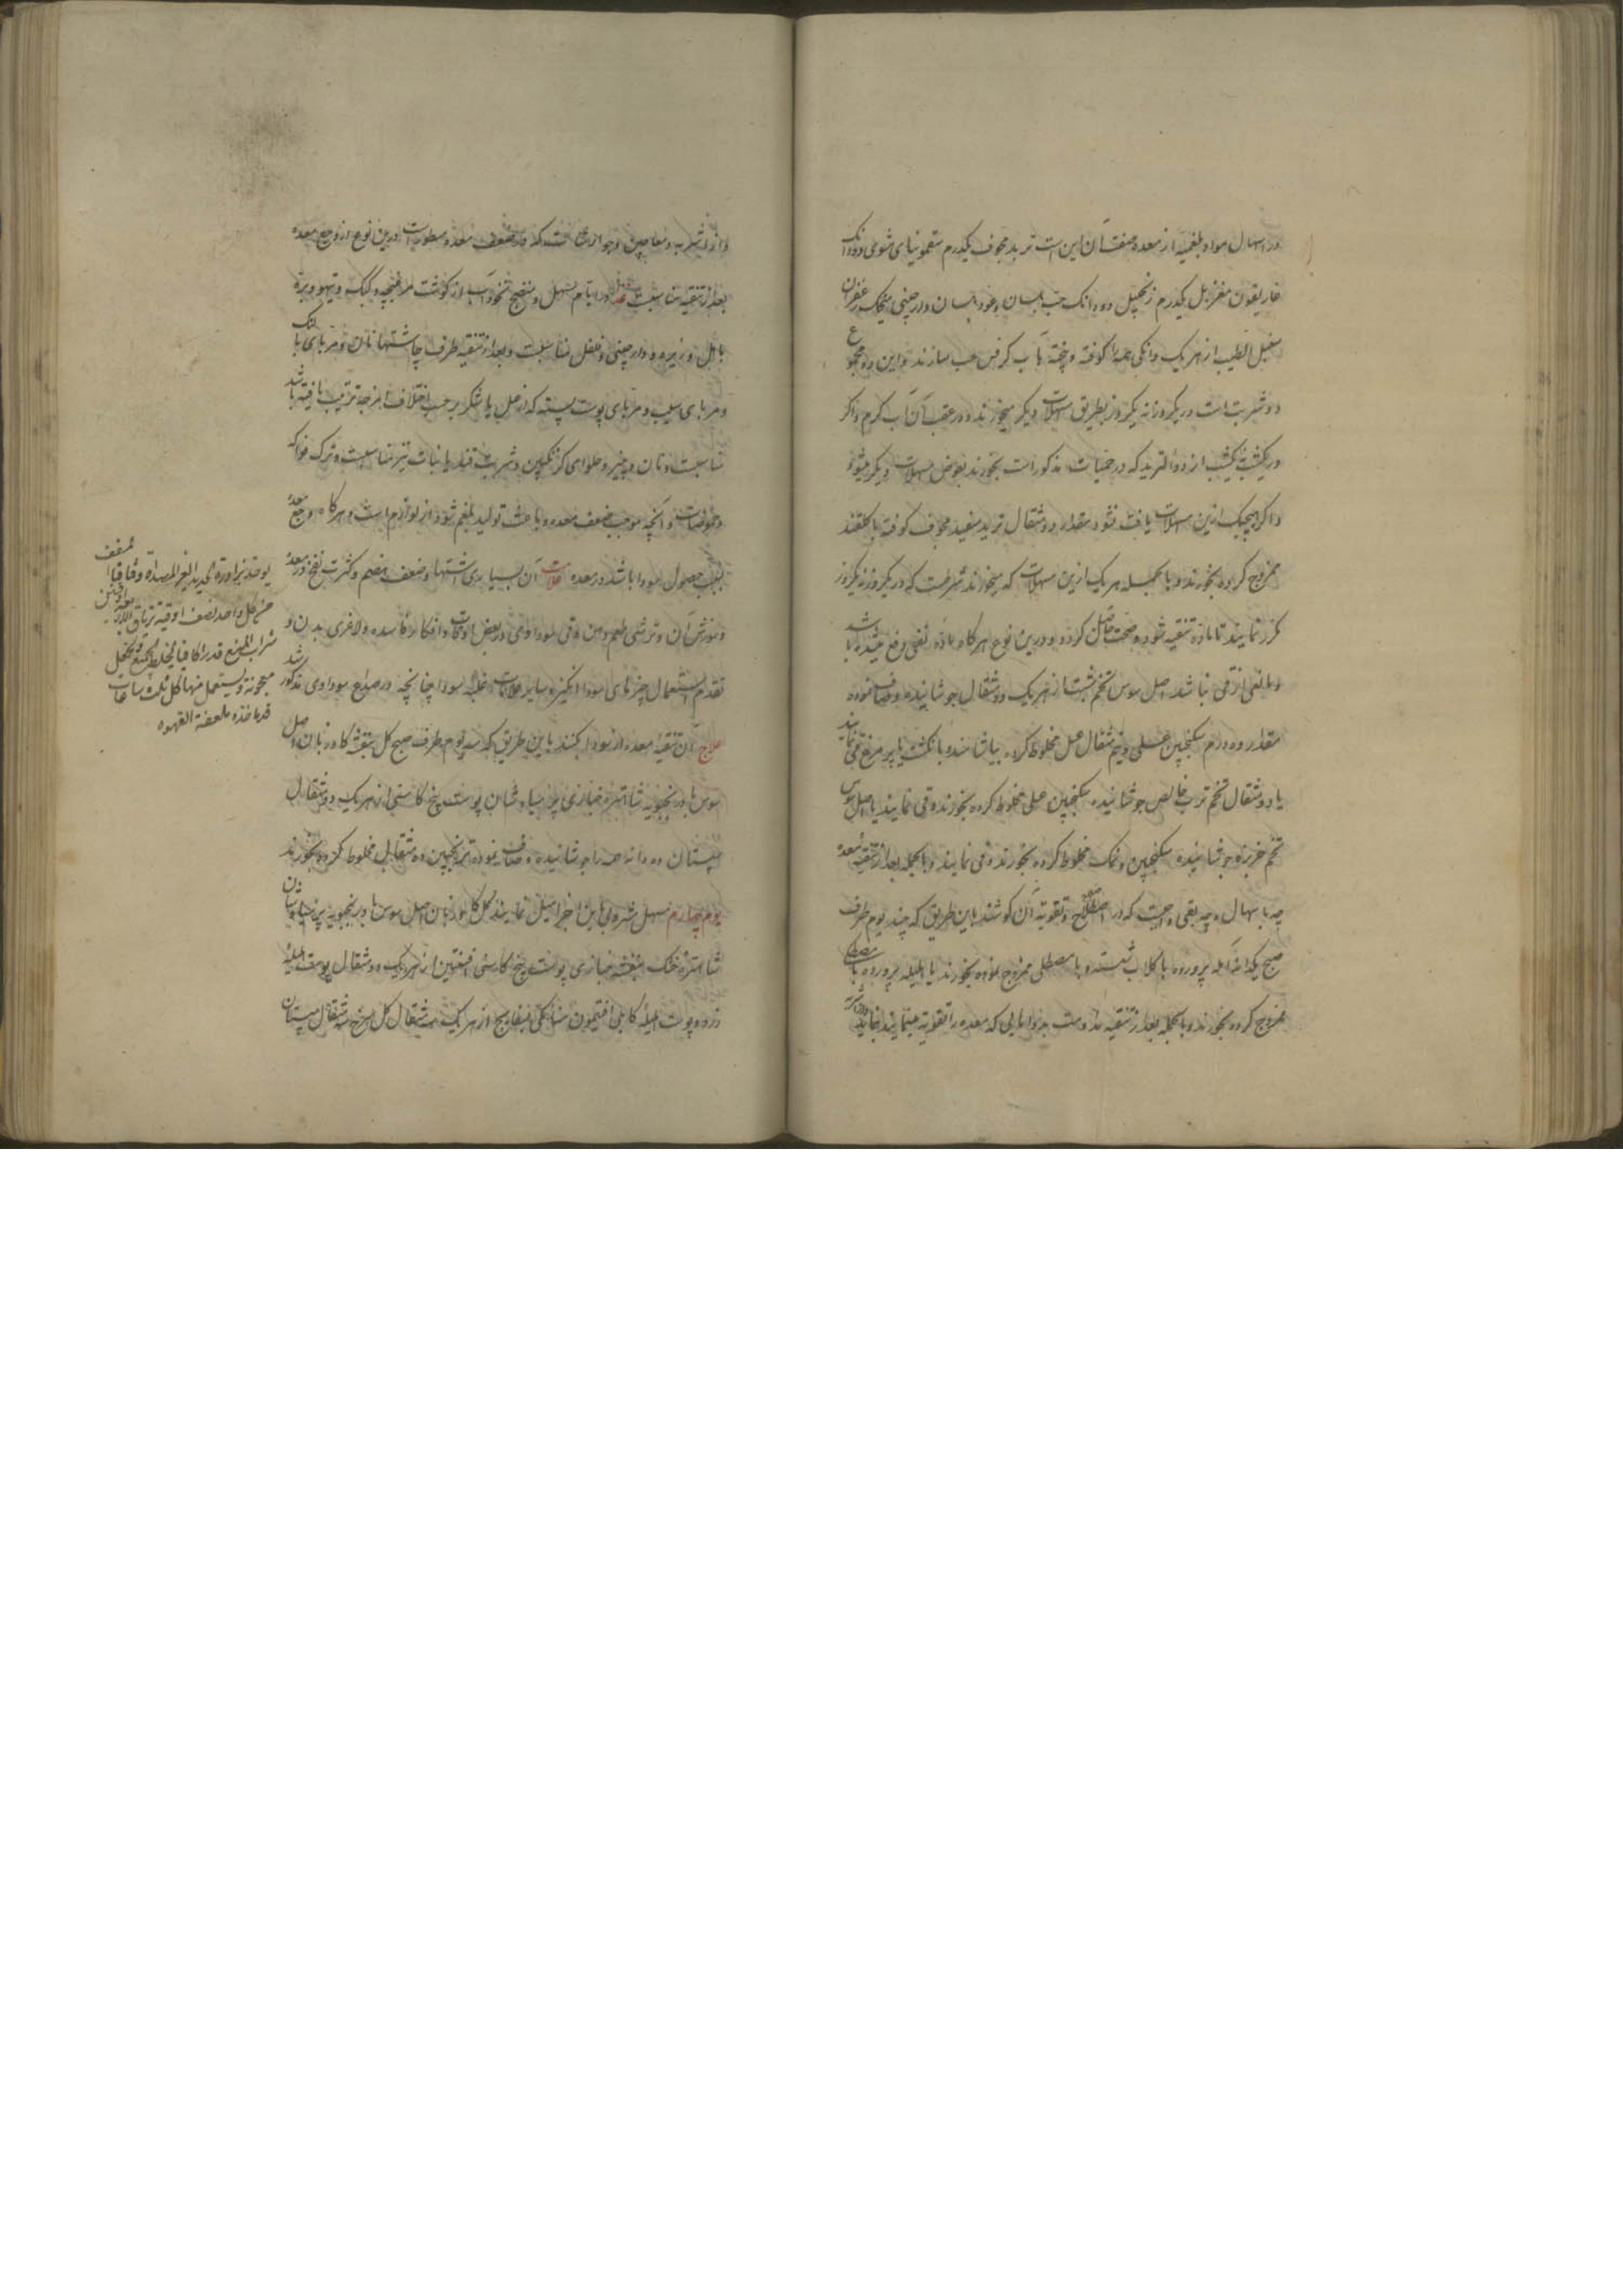 در اسهال مواد بلغمیه از معده صفت آن این است تربد مجوف یکدرم سقمونیای مشوی دودانک
غاریقون مغربل یکدرم زنجبیل دودانک حب بلسان وعود بلسان ودارچینی میخک زعفران
سنبل الطیب از هریک دانکی همه را کوفته و پخته بآب کرفس حب سازند واین مجموع
دو شربت است در یکروز نه یکروز بطریق مسهلات دیکر میخورند و در عقب آن آب کرم واکر
در یکشب نه یکشب از دواالتربد که در حمیات مذکور است بخورند بعوض مسهلات دیکر میشود
واکر هیچیک ازین مسهلات یافت نشود مقدار دو مثقال تربد سفید مجوف کوفته با کلقند
ممزوج کرده بخورند وبالجمله هریک ازین مسهلات که میخورند شرطست که در یکروز نه یکروز
مکرر نمایند تا ماده تنقیه شود و صحت حاصل کردد و درین نوع هرکاه ماده بقی دفع میشده باشد
ومانعی از قی نباشد اصل سوس تخم شبت از هریک دو مثقال جوشانیده وصاف نموده
مقدار ده درم سکنجبین عسلی و نیم مثقال عسل مخلوط کرده بیاشامند و بانکشت یا پر مرغ قی نمایند
یا دو مثقال تخم ترب خالص جوشانیده سکنجبین عسلی مخلوط کرده بخورند و قی نمایند یا اصل سوس
تخم خربزه جوشانیده سکنجبین ونمک مخلوط کرده بخورند وقی نمایند وبالجمله بعد از تنقیه معده
چه باسهال و چه بقی واجبست که در اصلاح وتقویت آن کوشند باین طریق که چند یوم طرف
صبح یکدانه آمله پرورده با کلاب شسته و با مصطکی ممزوج نموده بخورند یا هلیله پرورده با مصطکی
ممزوج کرده بخورند وبالجمله بعد از تنقیه مداومت بدواهایی که معده را تقویه مینماید نمایند
واز اشربه ومعاجین وجوارشات که در ضعف معده مسطور است درین نوع از وجع معده
بعد از تنقیه مناسبست غذا در ایام مسهل و منضج نخودآب از کوشت مرغ بچه وکبک وتیهو وبره
با هل و زیره و دارچینی وفلفل مناسبست وبعد از تنقیه طرف چاشتها نان ومربای بالنک
ومربای سیب ومربای پوست پسته که از عسل یا شکر بر حسب اختلاف امزجه ترتیب یافته باشد
مناسبست ونان وپنیر وحلوای کزنکبین وشربت قند یا نبات نیز مناسبست وترک فواکه
وحموضات وآنچه موجب ضعف معده وباعث تولید بلغم شود از لوازم است وهرکاه وجع معده
بسبب حصول سودا باشد در معده علامت آن بسیاری اشتها وضعف هضم وکثرت نفخ در معده
وسوزش آن وترشی طعم دهن وقی سوداوی در بعض اوقات وافکار فاسده ولاغری بدن و
تقدم استعمال چیزهای سوداانکیز وسایر علامات غلبه سودا چنانچه در صداع سوداوی مذکور شد
علاج آن تنقیه معده از سودا کنند باین طریق که سه یوم طرف صبح کل بنفشه کاوزبان اصل
سوس بادرنجبویه شاهتره خبازی پرسیاوشان پوست بیخ کاسنی از هریک دو مثقال
سپستان ده دانه همه را جوشانیده وصاف نموده ترنجبین ده مثقال مخلوط کرده بخورند
یوم چهارم مسهل مشروبی باین اجزا میل نمایند کل کاوزبان اصل سوس بادرنجبویه پرسیاوشان
شاهتره خشک بنفشه خبازی پوست بیخ کاسنی افسنتین از هریک دو مثقال پوست هلیله
زرد وپوست هلیله کابلی افتیمون سنامکی بسفایج از هریک سه مثقال کل سرخ سه مثقال سپستان
من کل واحد نصف اوقیه تریاق الاربعه
معجونة ویستعمل منها کل ثلث ساعات
قدر ما تاخذه ملعقة القهوه